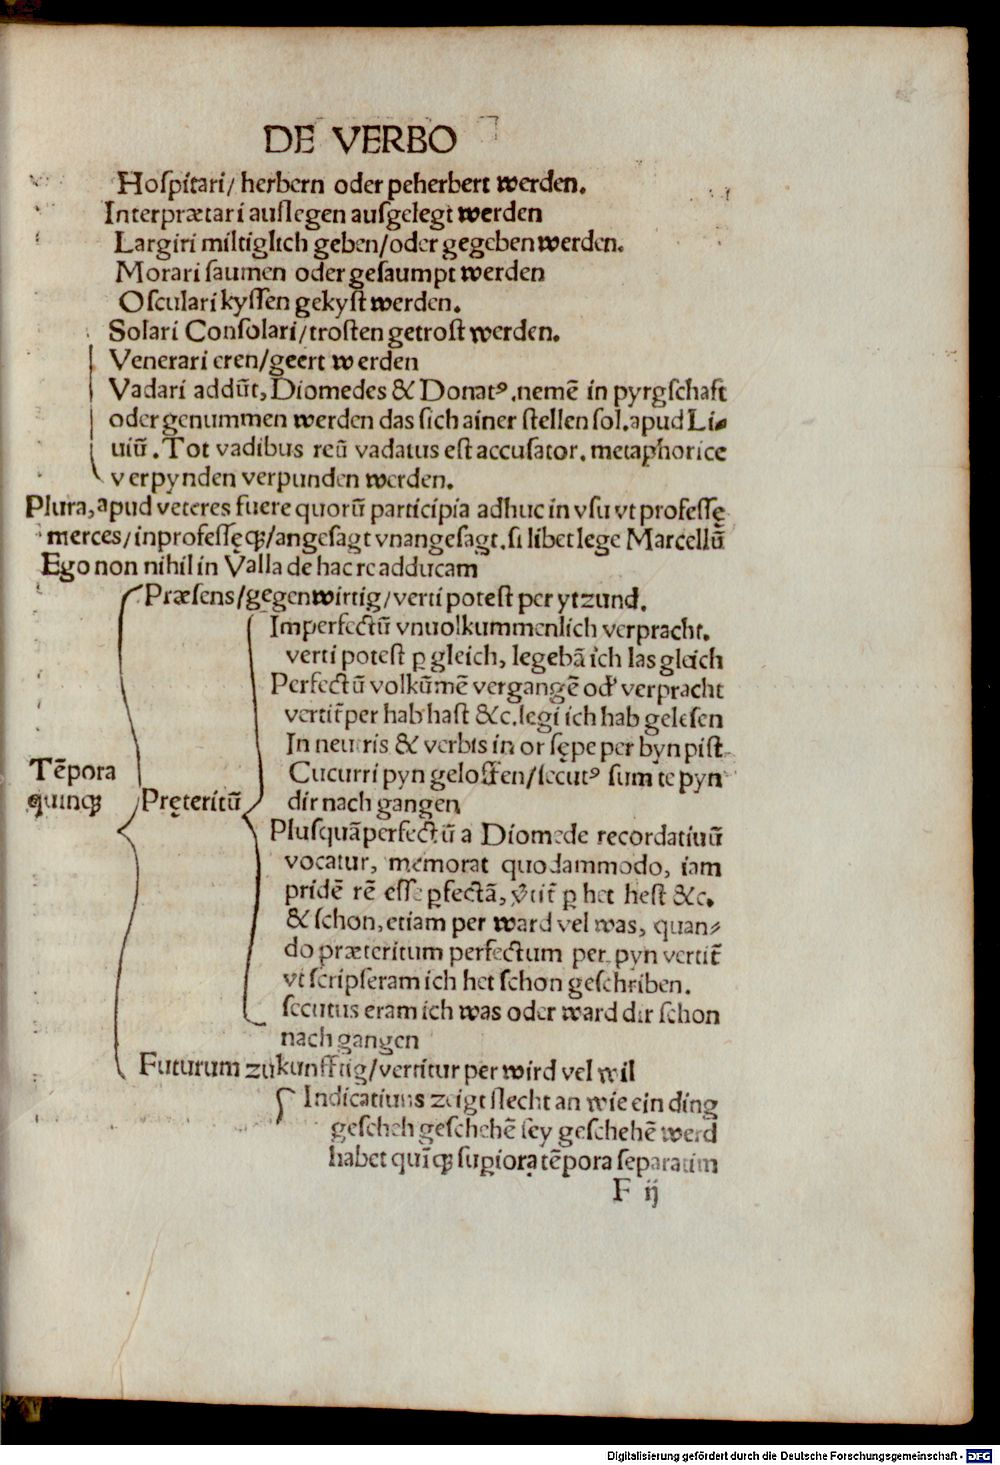 DE VERBO
Hoſpitari/ herbern oder peherbert werden.
Interprætari auſlegen auſgelegt werden
Largiri miltiglich geben/oder gegeben werden.
Morari ſaumen oder geſaumpt werden
Oſculari kyſſen gekyſt werden.
Solari Conſolari/troſten getroſt werden.
Venerari eren/geert werden
Vadari addūt, Diomedes & Donatꝰ.nemē in pyrgſchaft
oder genummen werden das ſich ainer ſtellen ſol.apud Li⸗
uiū. Tot vadibus reū vadatus eſt accuſator. metaphorice
verpynden verpunden werden.
Plura, apud veteres fuere quorū participia adhuc in vſu vt profeſſę
merces/inprofeſſęqꝫ/angeſagt vnangeſagt.ſi libet lege Marcellū
Ego non nihil in Valla de hac re adducam
Præſens/gegenwirtig/verti poteſt per ytzund.
Imperfectū vnuolkummenlich verpracht.
verti poteſt ꝑ gleich, legebā ich las gleich
Perfectū volkūmē vergangē od' verpracht
vertit̄ per hab haſt &c.legi ich hab geleſen
In neutris & verbis in or ſępe per byn piſt
Tēpora
quinqꝫ
Cucurri pyn geloffen/ſecutꝰ ſum te pyn
Pręteritū
dir nach gangen
Pluſquāperfectū a Diomede recordatiuū
vocatur, memorat quodammodo, iam
pridē rē eſſe ꝑfectā, v̓tit̄ ꝑ het heſt &c.
& ſchon, etiam per ward vel was, quan⸗
do præteritum perfectum per pyn vertit̄
vt ſcripſeram ich het ſchon geſchriben.
ſecutus eram ich was oder ward dir ſchon
nach gangen
Futurum zukunfftig/vertitur per wird vel wil
Indicatiuus zeigt ſlecht an wie ein ding
geſcheh geſchehē ſey geſchehē werd
habet quīqꝫ ſupiora tēpora ſeparatim
F ij
Digitalisierung gefördert durch die Deutsche Forschungsgemeinschaft - DFG